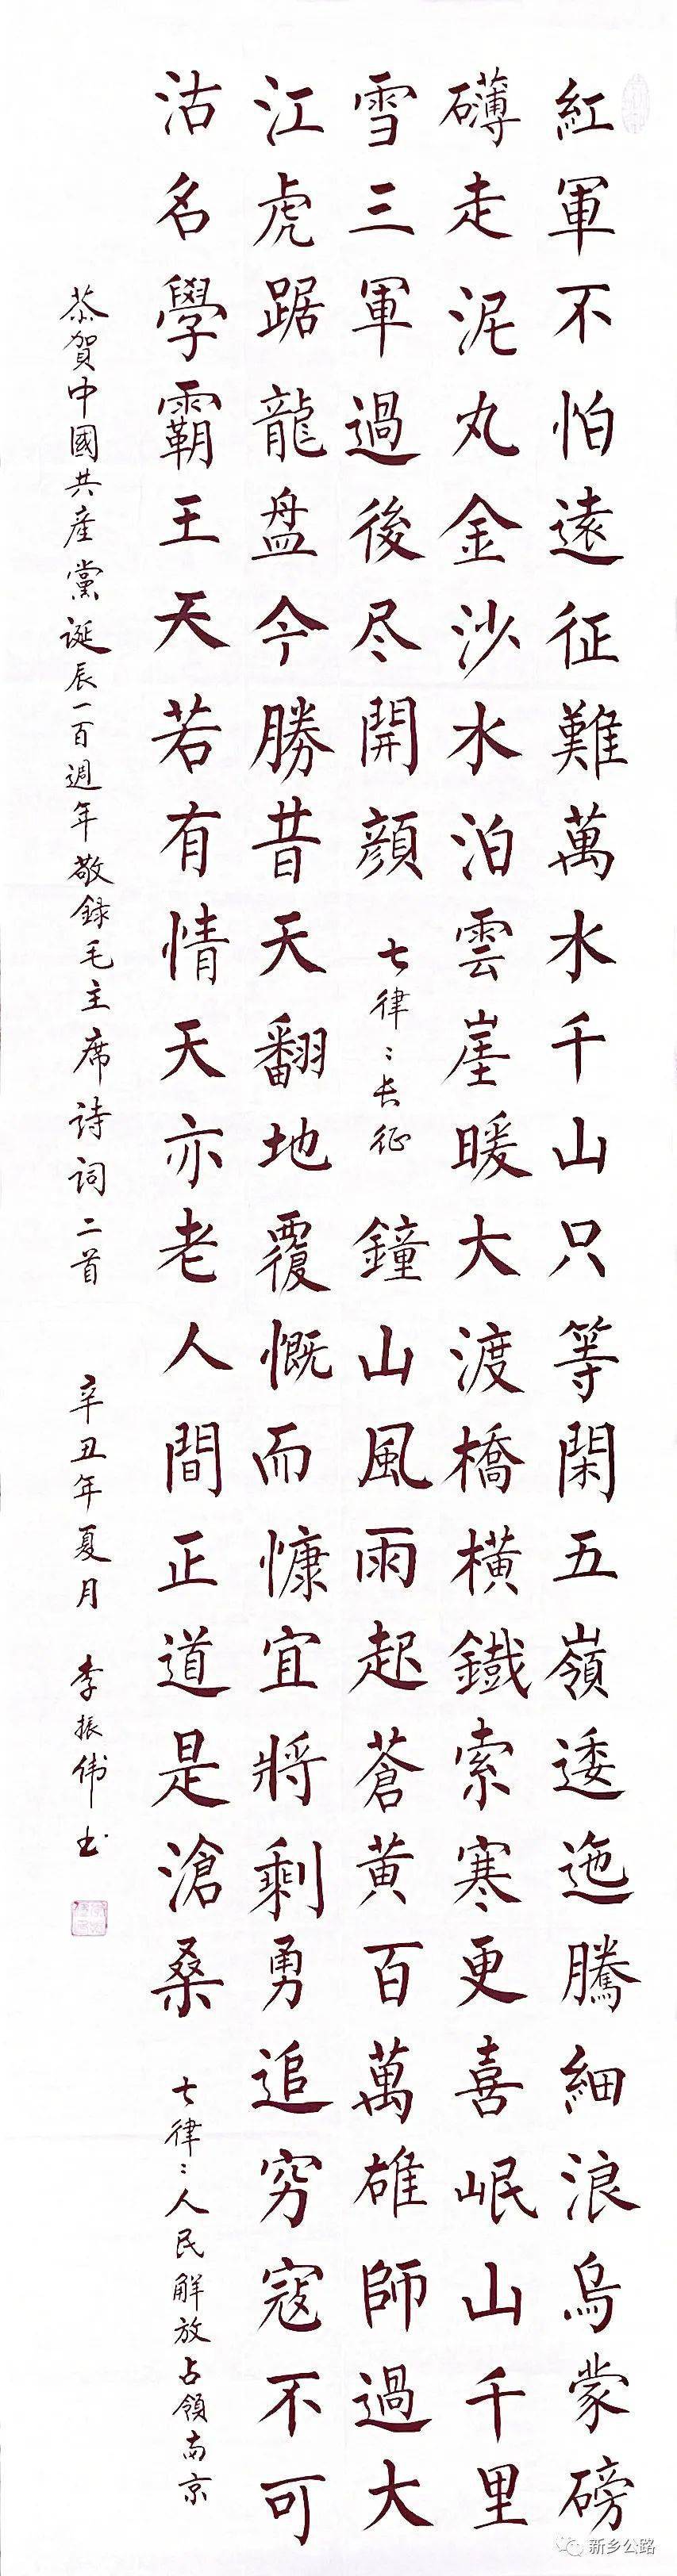 紅軍不怕遠征難萬水千山只等閑五嶺逶迤騰細浪烏蒙磅
礴走泥丸金沙水泊雲崖暖大渡橋橫鐵索寒更喜岷山千里
雪三軍過後尽開顏 七律:长征 鐘山風雨起蒼黃百萬雄師過大
江虎踞龍盘今勝昔天翻地覆慨而慷宜將剩勇追穷寇不可
沽名學霸王天若有情天亦老人間正道是滄桑 七律:人民解放占領南京
恭賀中國共產黨誕辰一百週年敬録毛主席詩詞二首 辛丑年夏月 李振伟书
新乡公路